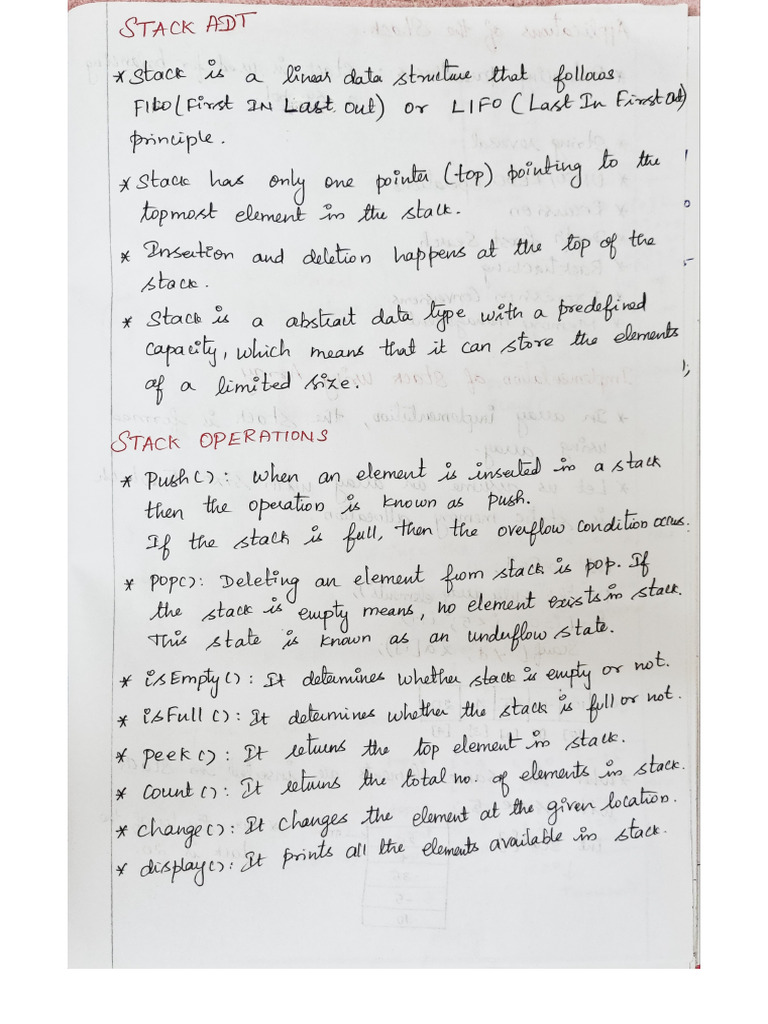 STACK ADT
* Stack is a linear data structure that follows
FILO (First IN Last out) or LIFO (Last In First Out)
principle.
* Stack has only one pointer (top) pointing to the
topmost element in the stack.
* Insertion and deletion happens at the top of the
stack.
* Stack is a abstract data type with a predefined
capacity, which means that it can store the elements
of a limited size.
STACK OPERATIONS
* Push(): When an element is inserted in a stack
then the operation is known as push.
If the stack is full, then the overflow condition occurs.
* POP(): Deleting an element from stack is pop. If
the stack is empty means, no element exists in stack.
This state is known as an underflow state.
* isEmpty(): It determines whether stack is empty or not.
* isFull(): It determines whether the stack is full or not.
* Peek(): It returns the top element in stack.
* Count(): It returns the total no. of elements in stack.
* change(): It changes the element at the given location.
* display(): It prints all the elements available in stack.